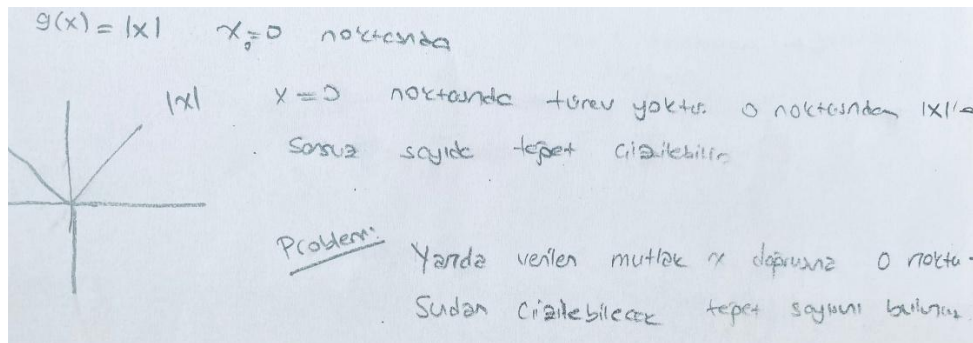 g(x) = |x| x₀=0 noktasında
|x|
x=0 noktasında türev yoktur. 0 noktasından |x|'e
sonsuz sayıda teğet çizilebilir.
Problem: Yanda verilen mutlak x doğrusuna 0 nokta-
sından çizilebilecek teğet sayısını bulunuz